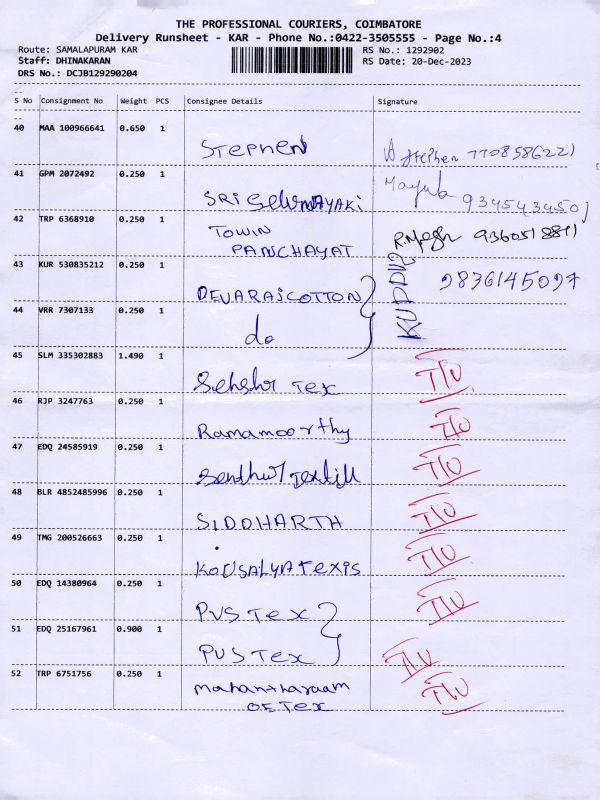 THE PROFESSIONAL COURIERS, COIMBATORE
Delivery Runsheet - KAR - Phone No.:0422-3505555 - Page No.:4
Route: SAMALAPURAM KAR RS No.: 1292902
Staff: DHINAKARAN RS Date: 20-Dec-2023
DRS No.: DCJB129290204
S No Consignment No Weight PCS Consignee Details Signature
40 MAA 100966641 0.650 1
Stephen Stephen 7708586221
41 GPM 2072492 0.250 1
SRI Selvinayaki 9345434501
42 TRP 6368910 0.250 1
TOWIN
PANCHAYAT 9360518811
43 KUR 530835212 0.250 1
DEVARAJCOTTON KUPPU 9836145097
44 VRR 7307133 0.250 1
do
45 SLM 335302883 1.490 1
Tex TIU
46 RJP 3247763 0.250 1
Ramamoorthy TIU
47 EDQ 24585919 0.250 1
Senthul Textill TIU
48 BLR 4852485996 0.250 1
SIDDHARTH TIU
49 TMG 200526663 0.250 1
KOUSALYA Texis TIU
50 EDQ 14380964 0.250 1
PVS Tex TIU
51 EDQ 25167961 0.900 1
PVS Tex TIU
52 TRP 6751756 0.250 1
mahantharaam TIU
O.E.Tex